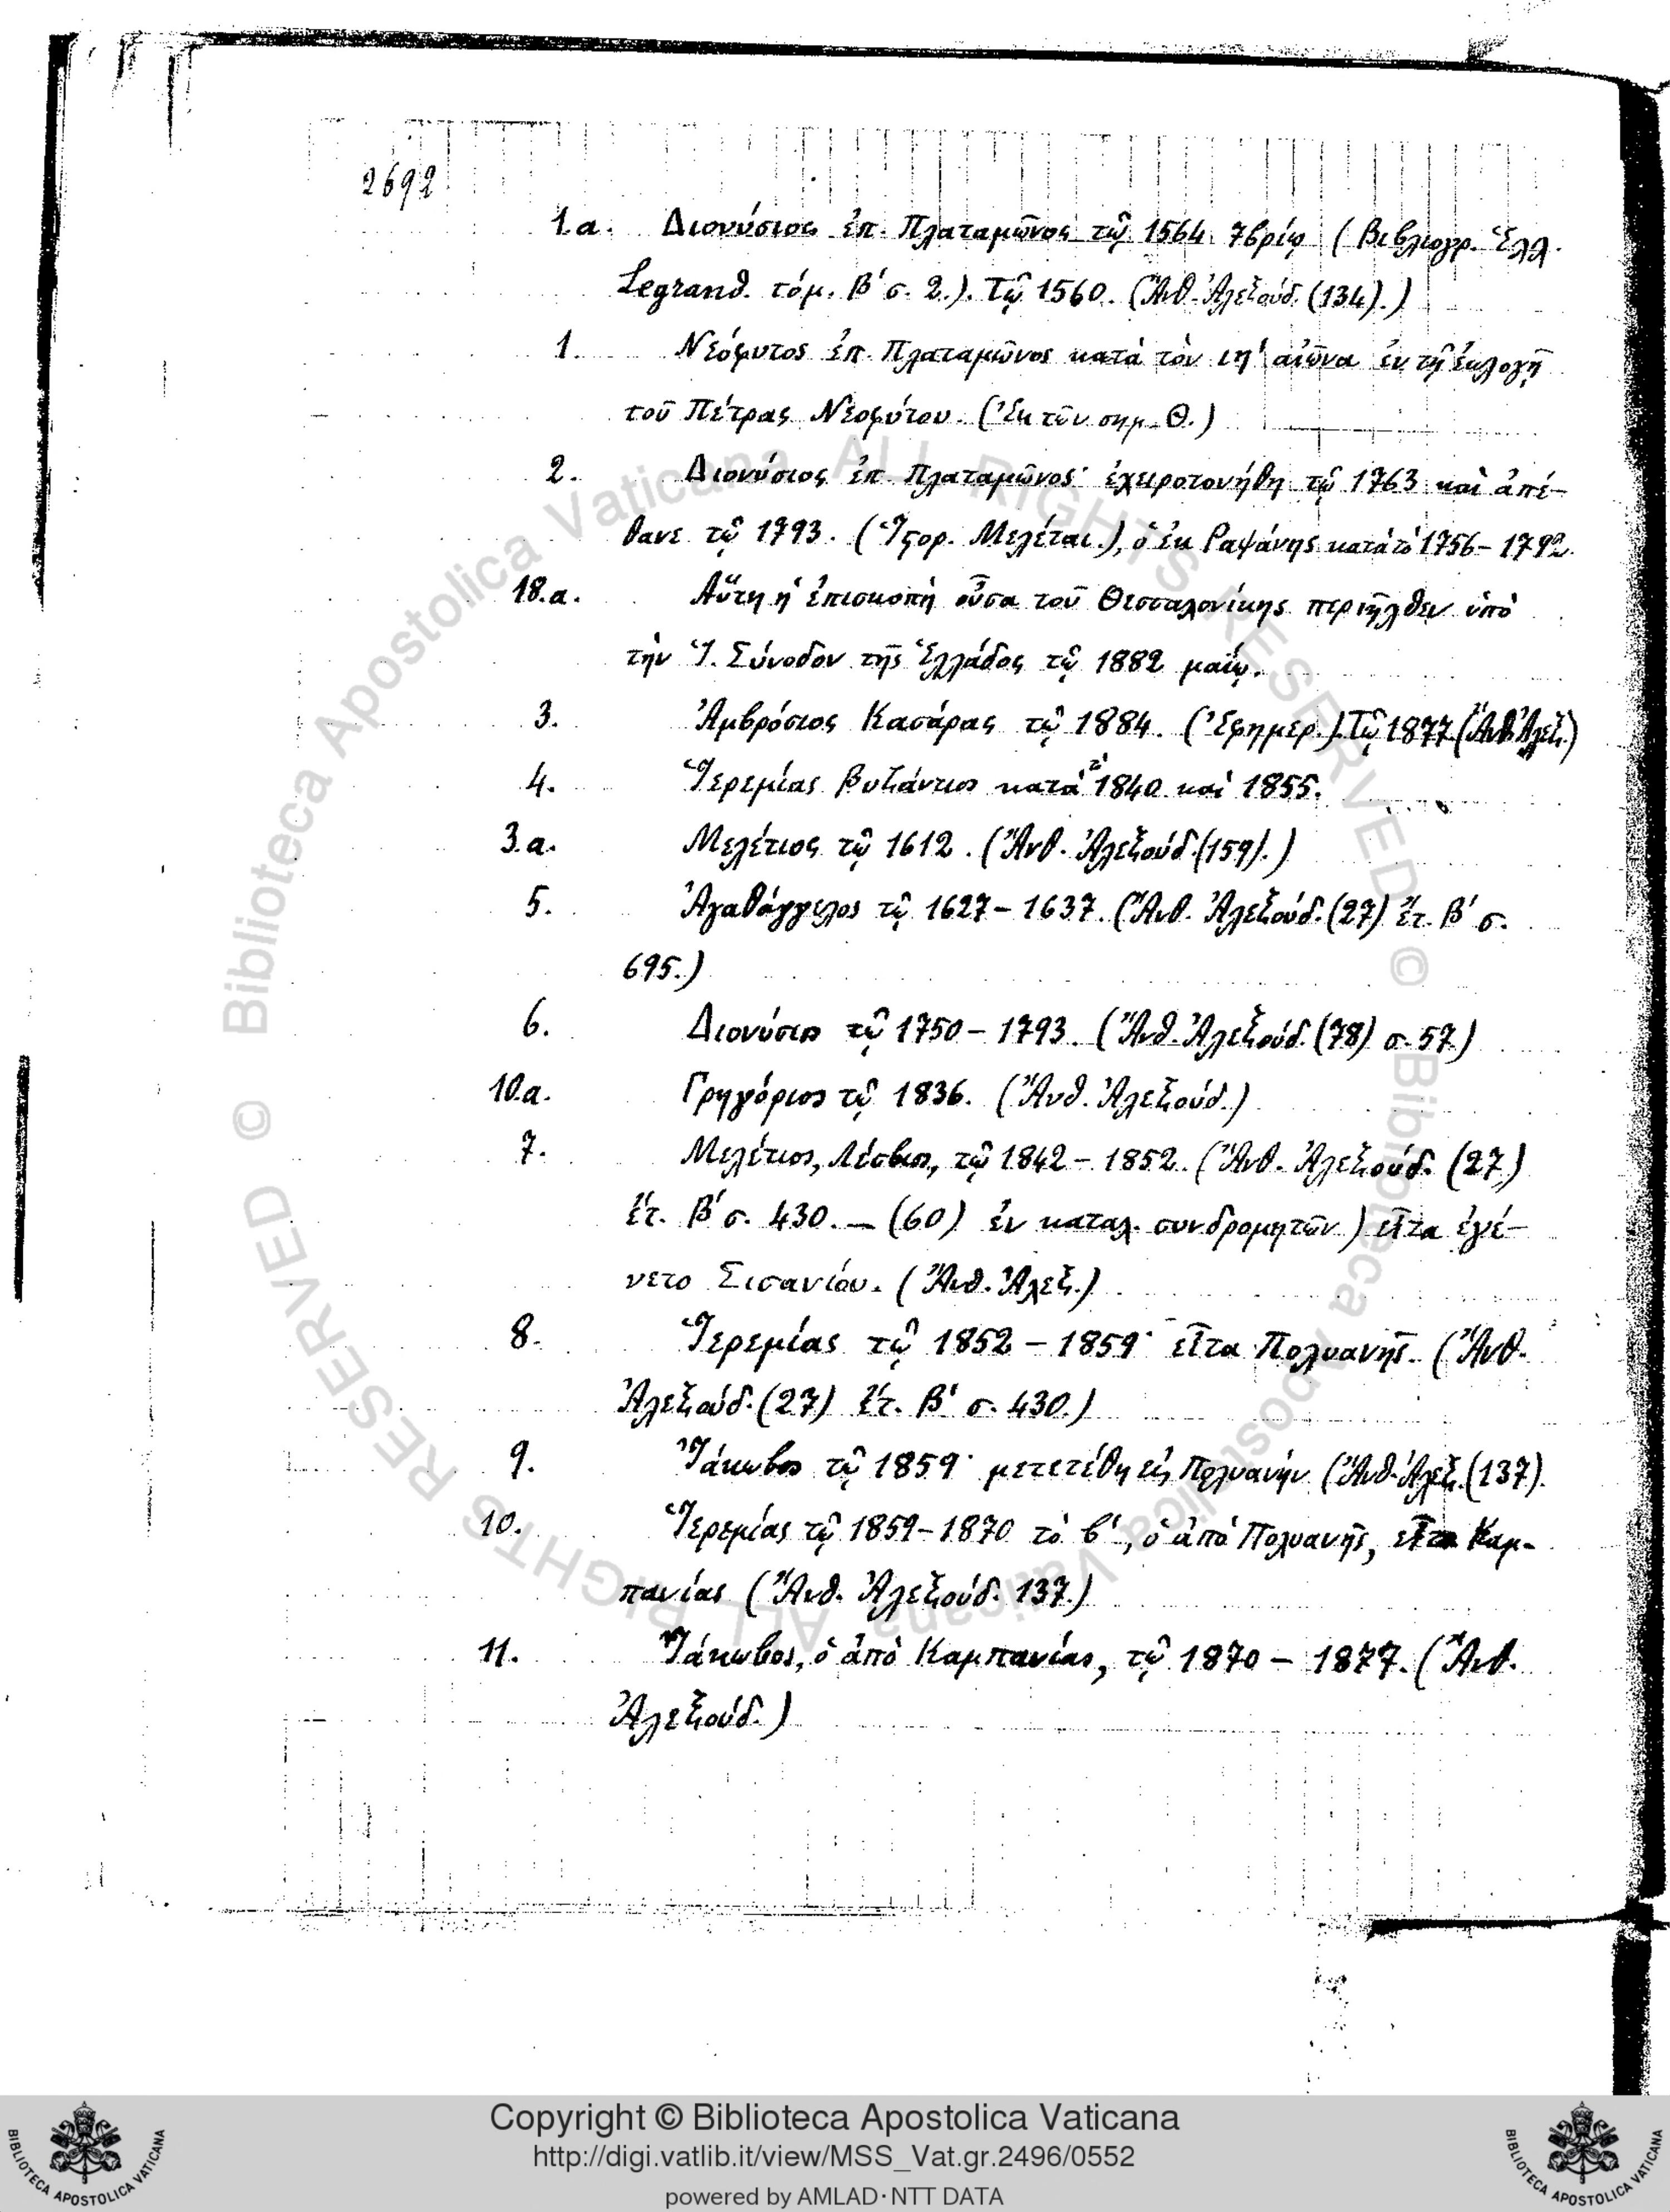 2692
1.α. Διονύσιος ἐπ. Πλαταμῶνος τῷ 1564 7βρίῳ (Βιβλιογρ. Ἑλλ.
Legrand. τόμ. Β΄ σ. 2.). Τῷ 1560. (Ἄνθ. Ἀλεξούδ. (134).)
1. Νεόφυτος ἐπ. Πλαταμῶνος κατὰ τὸν ιη΄ αἰῶνα ἐν τῇ ἐκλογῇ
τοῦ Πέτρας Νεοφύτου. (Ἐκ τῶν σημ. Θ.)
2. Διονύσιος ἐπ. Πλαταμῶνος· ἐχειροτονήθη τῷ 1763 καὶ ἀπέ-
θανε τῷ 1793. (Ἱστορ. Μελέται.), ὁ ἐκ Ραψάνης κατὰ τὸ 1756-1792.
18.α. Αὕτη ἡ ἐπισκοπὴ οὖσα τοῦ Θεσσαλονίκης περιῆλθεν ὑπὸ
τὴν Ἱ. Σύνοδον τῆς Ἑλλάδος τῷ 1882 μαΐῳ.
3. Ἀμβρόσιος Κασάρας τῷ 1884. (Ἐφημερ.) Τῷ 1877 (Ἄνθ. Ἀλεξ.)
4. Ἱερεμίας Βυζάντιος κατὰ τὸ 1840 καὶ 1855.
3.α. Μελέτιος τῷ 1612. (Ἄνθ. Ἀλεξούδ. (159).)
5. Ἀγαθάγγελος τῷ 1627-1637. (Ἄνθ. Ἀλεξούδ. (27) ἔτ. Β΄ σ.
695.)
6. Διονύσιος τῷ 1750-1793. (Ἄνθ. Ἀλεξούδ. (78) σ. 57.)
10.α. Γρηγόριος τῷ 1836. (Ἄνθ. Ἀλεξούδ.)
7. Μελέτιος, Λέσβιος, τῷ 1842-1852. (Ἄνθ. Ἀλεξούδ. (27)
ἔτ. Β΄ σ. 430. — (60) ἐν καταλ. συνδρομητῶν) εἶτα ἐγέ-
νετο Σισανίου. (Ἄνθ. Ἀλεξ.)
8. Ἱερεμίας τῷ 1852-1859· εἶτα Πολυανῆς. (Ἄνθ.
Ἀλεξούδ. (27) ἔτ. Β΄ σ. 430.)
9. Ἰάκωβος τῷ 1859· μετετέθη εἰς Πολυανήν (Ἄνθ. Ἀλεξ. (137).
10. Ἱερεμίας τῷ 1859-1870 τὸ β΄, ὁ ἀπὸ Πολυανῆς, εἶτα Καμ-
πανίας (Ἄνθ. Ἀλεξούδ. 137.)
11. Ἰάκωβος, ὁ ἀπὸ Καμπανίας, τῷ 1870-1877. (Ἄνθ.
Ἀλεξούδ.)
© Biblioteca Apostolica Vaticana ALL RIGHTS RESERVED
© Biblioteca Apostolica Vaticana ALL RIGHTS RESERVED
Copyright © Biblioteca Apostolica Vaticana
http://digi.vatlib.it/view/MSS_Vat.gr.2496/0552
powered by AMLAD·NTT DATA
BIBLIOTECA APOSTOLICA VATICANA
BIBLIOTECA APOSTOLICA VATICANA